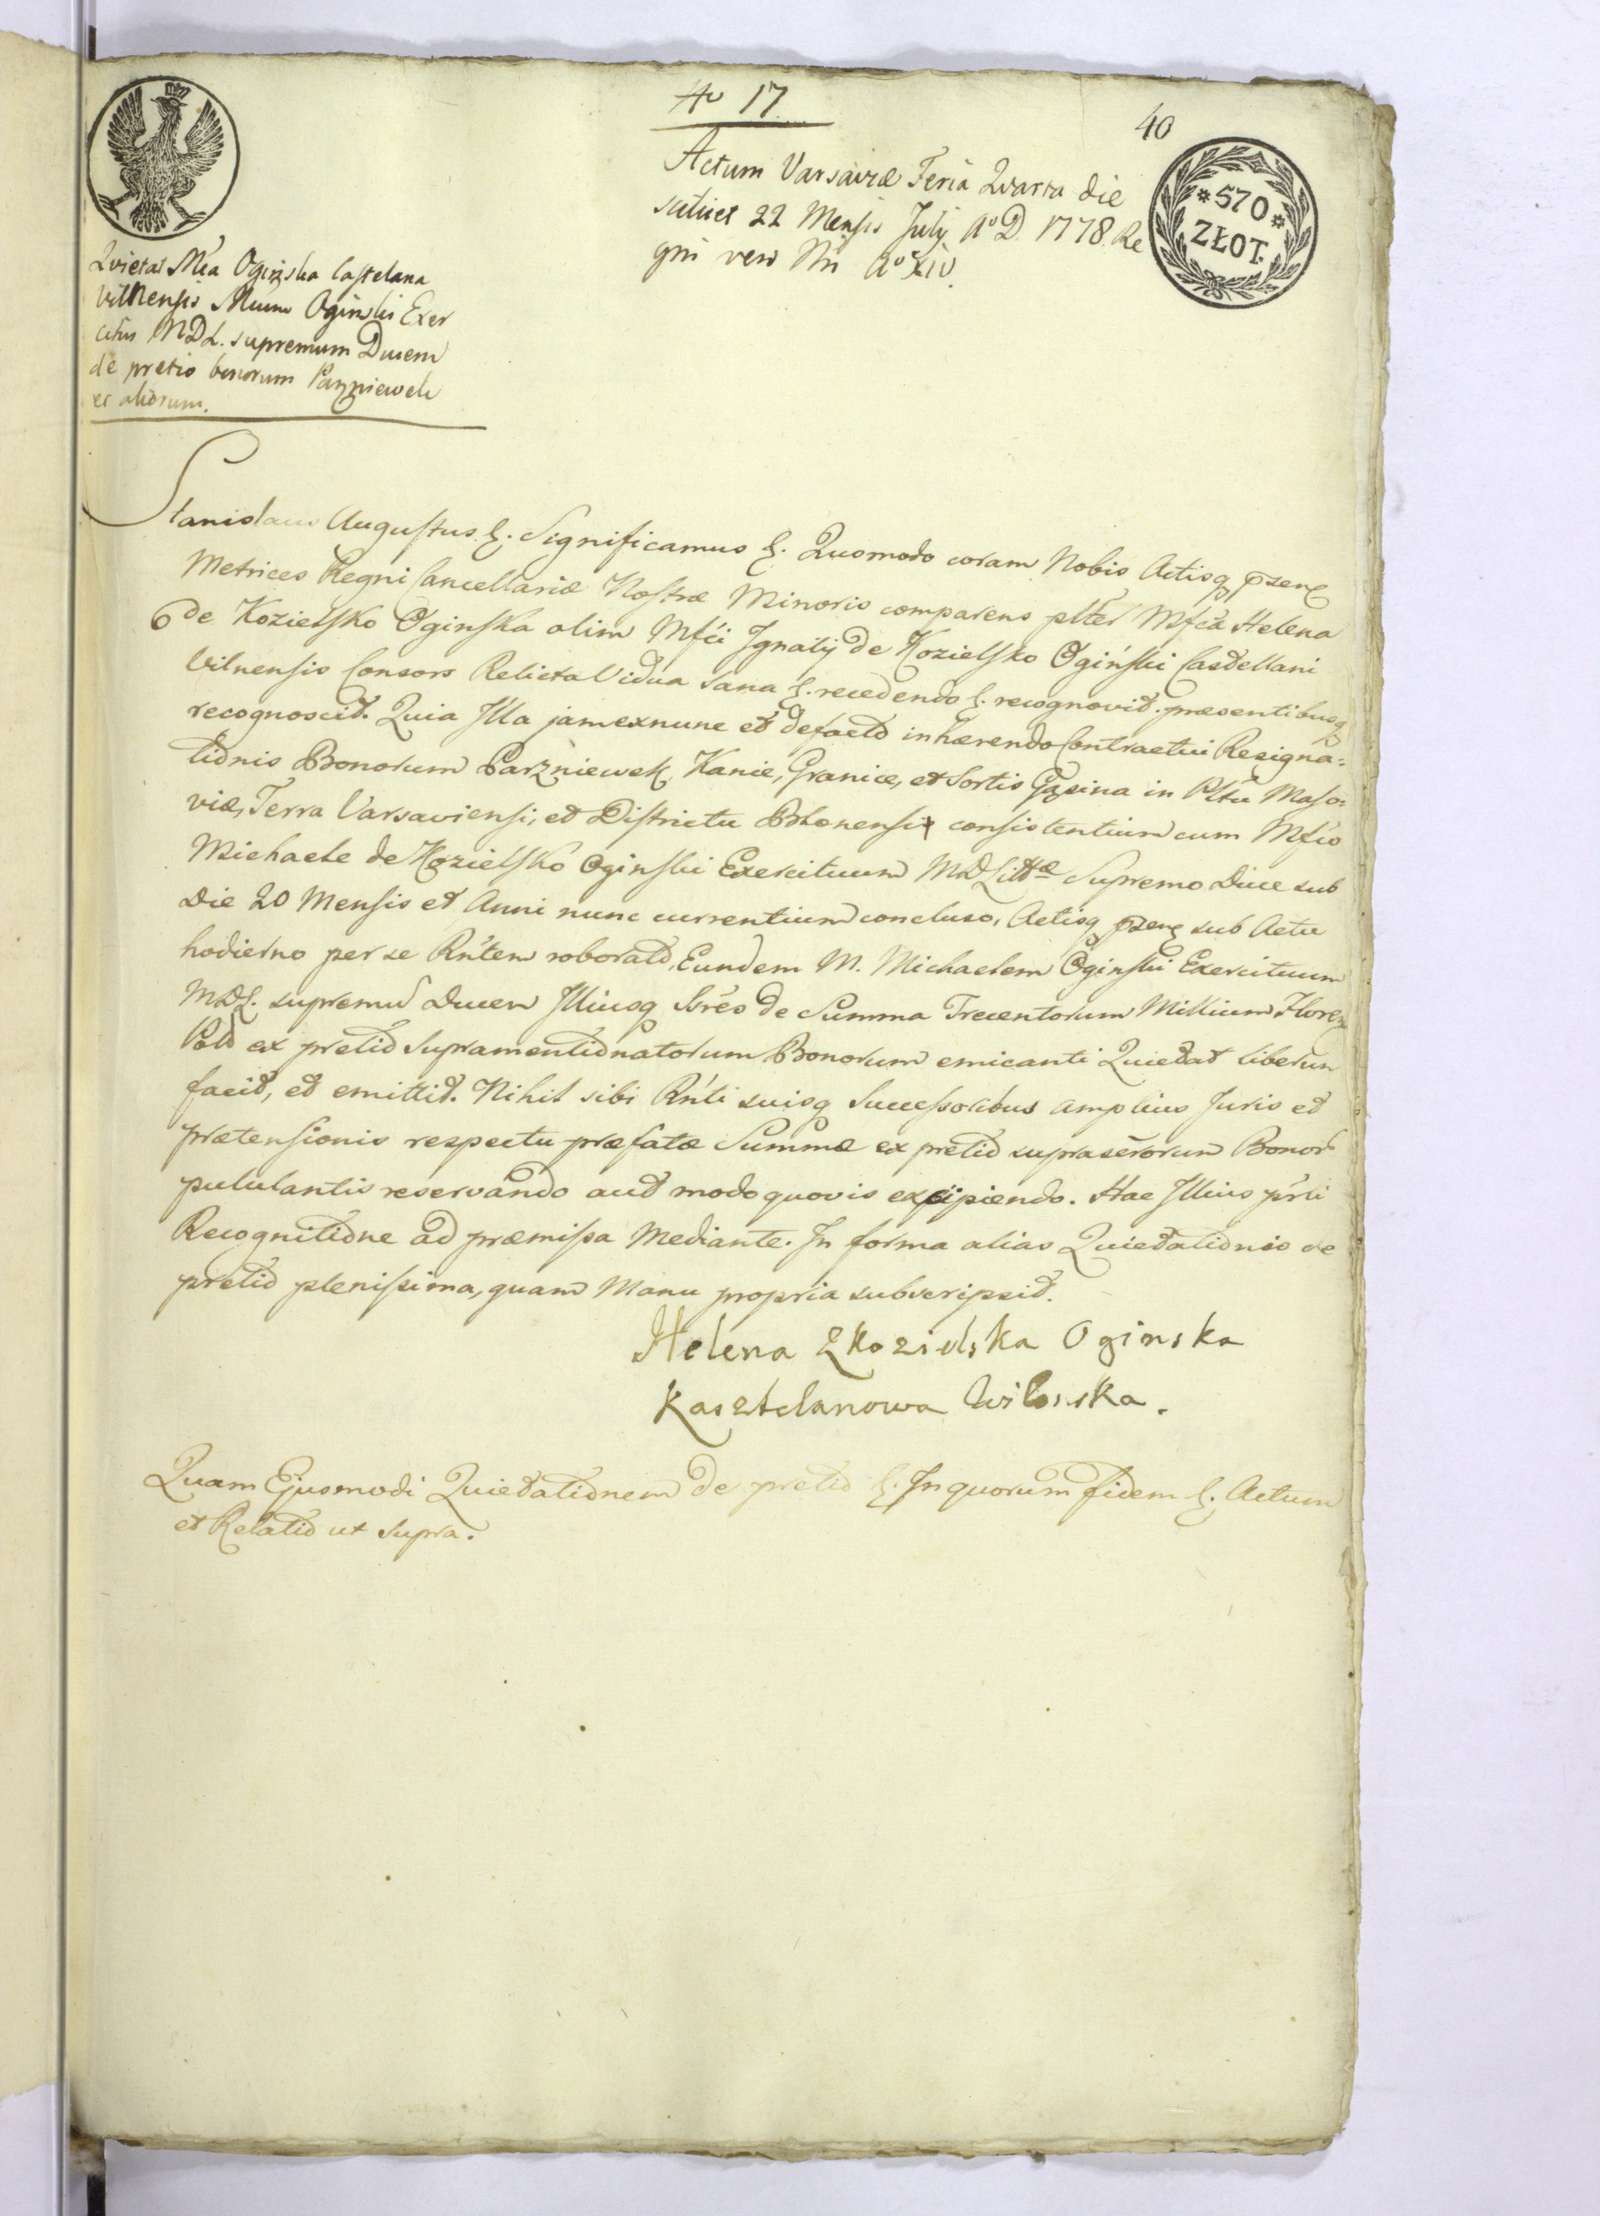 No 17
40
570
ZŁOT.
Actum Varsaviæ Feria Qvarta die
scilicet 22 Mensis July Aº D. 1778. Re
gni vero Nri Aº XIV.
Qvietat Mca Oginska Castelana
Vilnensis Mcum Oginski Exer
citus MDL. supremum Ducem
de pretio bonorum Parzniewek
et aliorum.
Stanislaus Augustus &. Significamus &. Quomodo coram Nobis Actisq pzens
Metrices Regni Cancellariæ Nostræ Minoris comparens plter Mfca Helena
de Kozielsko Oginska olim Mfci Ignatij de Kozielsko Ogiński Castellani
Vilnensis Consors Relicta Vidua sana &. recedendo &. recognovit. præsentibusq
recognoscit. Quia Illa jam exnunc et defacto inhærendo Contractui Resigna=
tionis Bonorum Parzniewek, Kanie, Granice, et Sortis in Pltu Maso=
viæ, Terra Varsaviensi, et Districtu Blonensi consistentium cum Mfco
Michaele de Kozielsko Oginski Exercituum MDLittæ Supremo Duce sub
Die 20 Mensis et Anni nunc currentium concluso, Actisq pzens sub Actu
hodierno per se Rntem roborato, Eundem M. Michaelem Oginski Exercituum
MDL. supremum Ducem Illiusq Sres de Summa Trecentorum Millium Floren
Pol ex pretio Supramentionatorum Bonorum emicanti Quietat liberum
facit, et emittit. Nihil sibi Rnti suisq Successoribus amplius Juris et
prætensionis respectu præfatæ Summæ ex pretio suprascrorum Bonor
pululantis reservando aut modo quovis excipiendo. Hac Illius prti
Recognitione ad præmissa Mediante. In forma alias Quietationis de
pretio plenissima, quam Manu propria subscripsit.
Helena z Kozielska Oginska
Kasztelanowa Wilenska.
Quam Ejusmodi Quietationem de pretio &. In quorum fidem &. Actum
et Relatio ut supra.